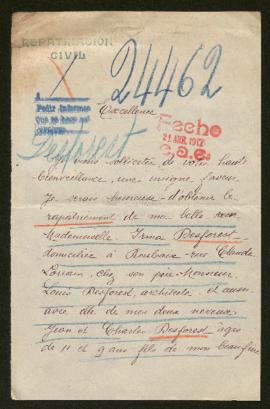 REPATRIACION
CIVIL
24462
A
Pedir informes
que se hace saf
Excellence
Fecho
21 ABR. 1917
Desforest
Je viens solliciter de votre haute
bienveillance, une insigne faveur.
Je serais heureuse d'obtenir le
rapatriement de ma belle sœur
Mademoiselle Irma Desforest
domiciliée à Roubaix rue Claude
Lorrain, chez son père Monsieur
Louis Desforest, architecte, et aussi
avec elle de mes deux neveux
Jean et Charles Desforest âgés
de 11 et 9 ans fils de mon beau frère